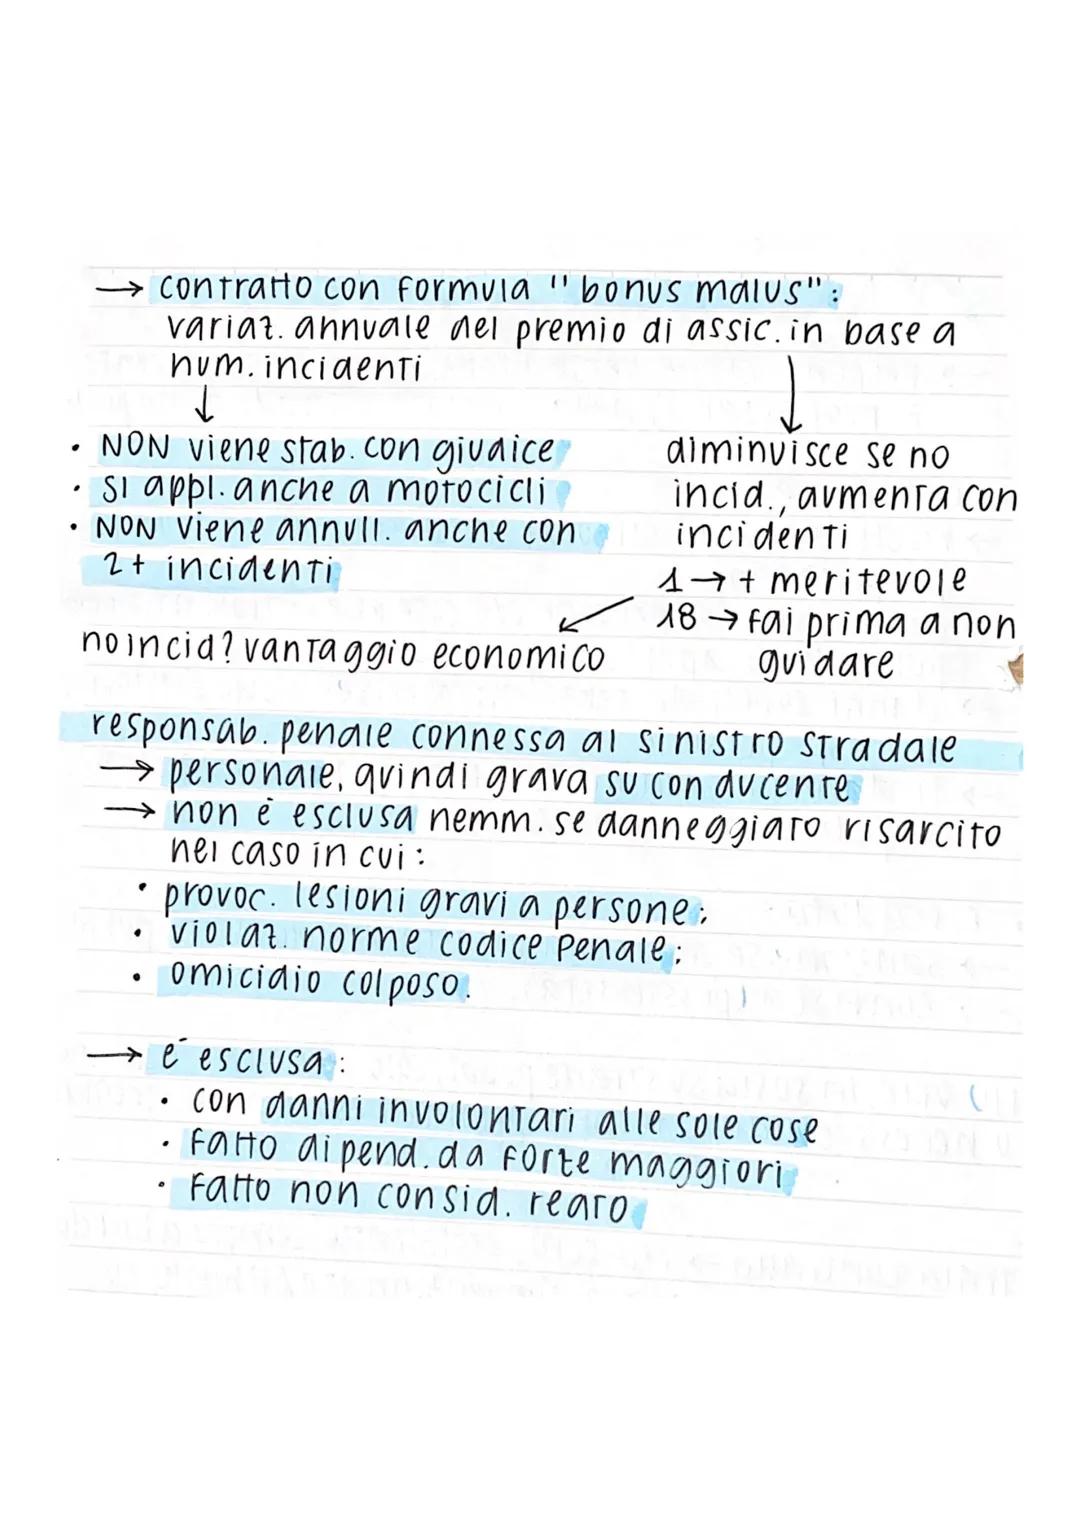 → contratto con formula "bonus malus":
variaz. annuale del premio di assic. in base a
num. incidenti
↓
• NON viene stab. con giudice
• si appl. anche a motocicli
• NON viene annull. anche con
2+ incidenti
↓
diminuisce se no
incid., aumenta con
incidenti
1 → + meritevole
18 → fai prima a non
guidare
no incid? vantaggio economico
responsab. penale connessa al sinistro stradale
→ personale, quindi grava su conducente
→ non é esclusa nemm. se danneggiato risarcito
nel caso in cui:
• provoc. lesioni gravi a persone;
• violaz. norme codice Penale;
• omicidio colposo.
→ é esclusa:
• con danni involontari alle sole cose
• fatto dipend. da forte maggiori
• fatto non consid. reato